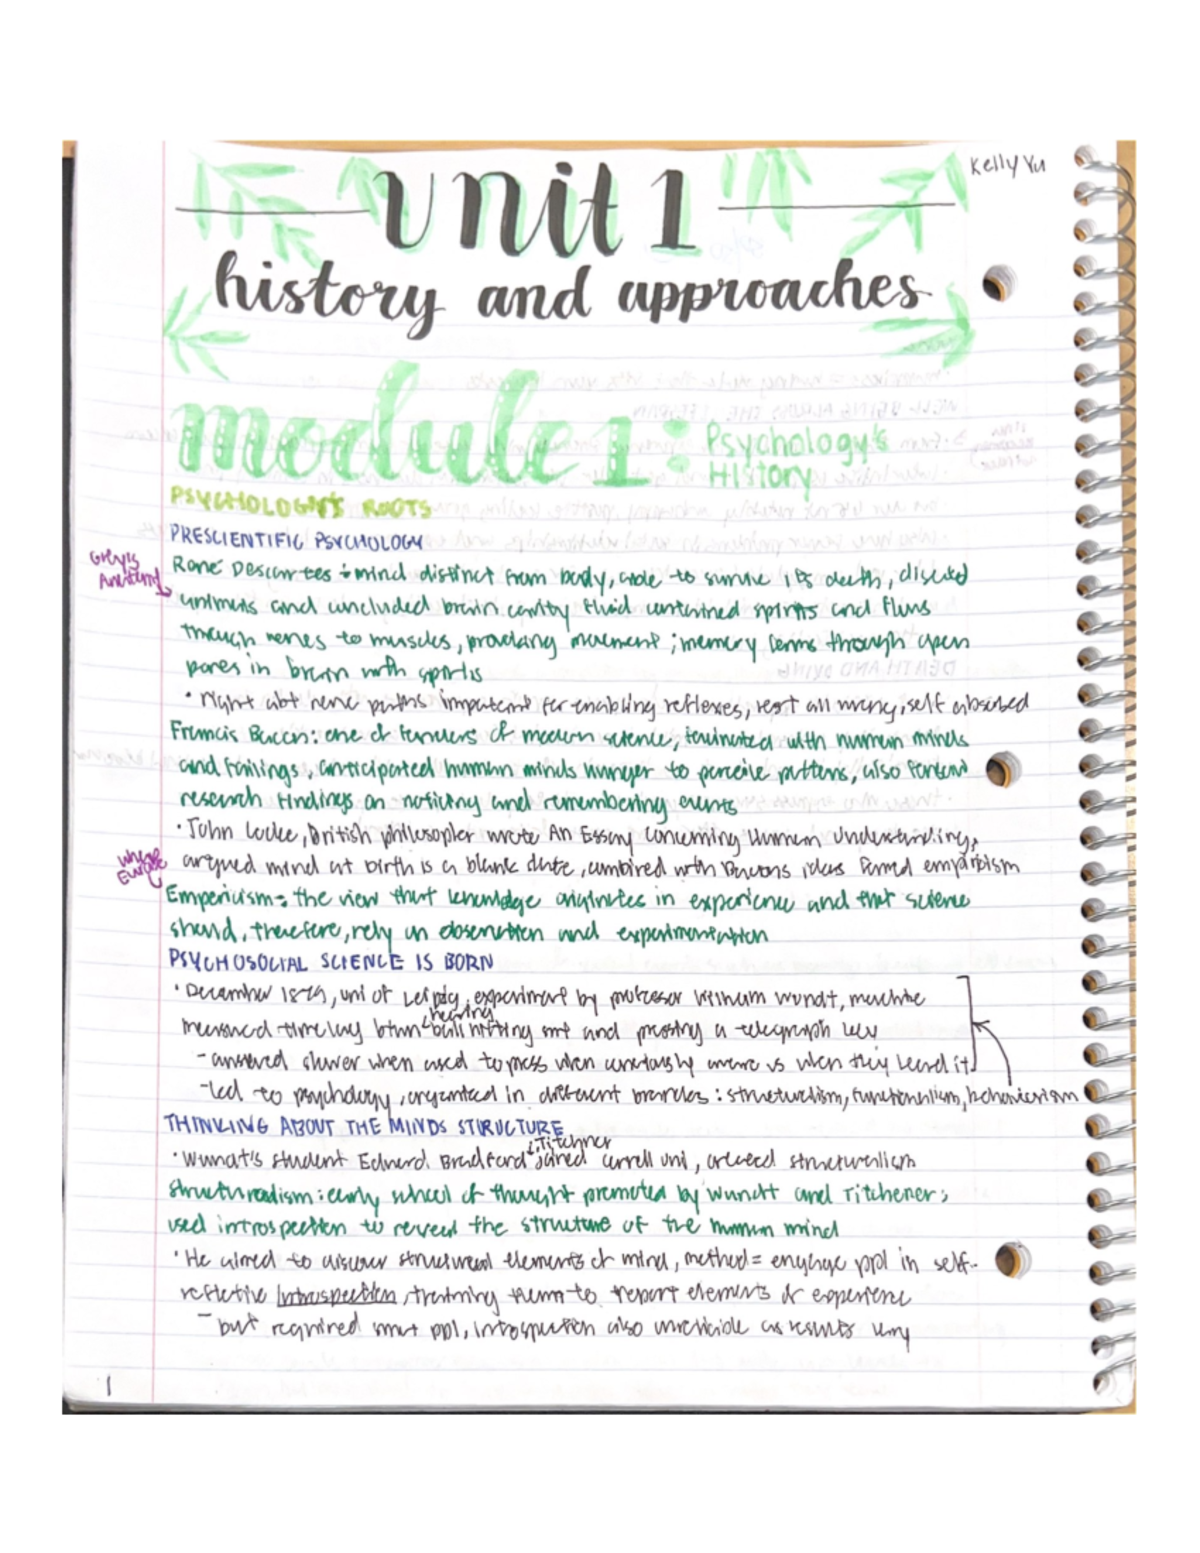 Kelly Yu
Unit 1
history and approaches
module 1: Psychology's
History
PSYCHOLOGY'S ROOTS
PRESCIENTIFIC PSYCHOLOGY
Grey's
Anatomy
René Descartes: mind distinct from body, able to survive its death, dissected
animals and concluded brain cavity fluid contained spirits and flows
through nerves to muscles, provoking movement; memory forms through open
pores in brain with spirits
• right abt nerve paths important for enabling reflexes, rest all wrong, self absorbed
Francis Bacon: one of founders of modern science, fascinated with human minds
and failings, anticipated human minds hunger to perceive patterns, also
research findings on noticing and remembering events
• John Locke, British philosopher wrote An Essay Concerning Human Understanding,
argued mind at birth is a blank slate, combined with Bacons ideas formed empiricism
Empericism: the view that knowledge originates in experience and that science
should, therefore, rely on observation and experimentation
PSYCHOSOCIAL SCIENCE IS BORN
• December 1879, uni of Leipzig, experiment by professor Wilhelm Wundt, machine
measured time lag btwn hearing ball hitting and pressing a telegraph key
- answered slower when asked to press when consciously aware vs when they heard it
- led to psychology, organized in different branches: structuralism, functionalism, behaviorism
THINKING ABOUT THE MINDS STRUCTURE
• Wundt's student Edward Bradford Titchner joined uni, created structuralism
Structuralism: early school of thought promoted by Wundt and Titchener;
used introspection to reveal the structure of the human mind
• He aimed to discover structural elements of mind, method = engage ppl in self-
reflective introspection, training them to report elements of experience
- but required smart ppl, introspection also unreliable as results vary
1